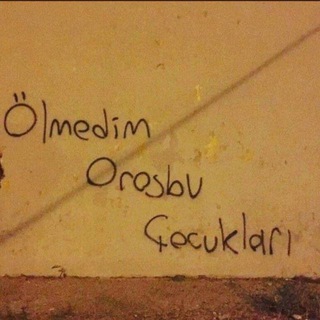 Ölmedim
Orosbu
Çocukları